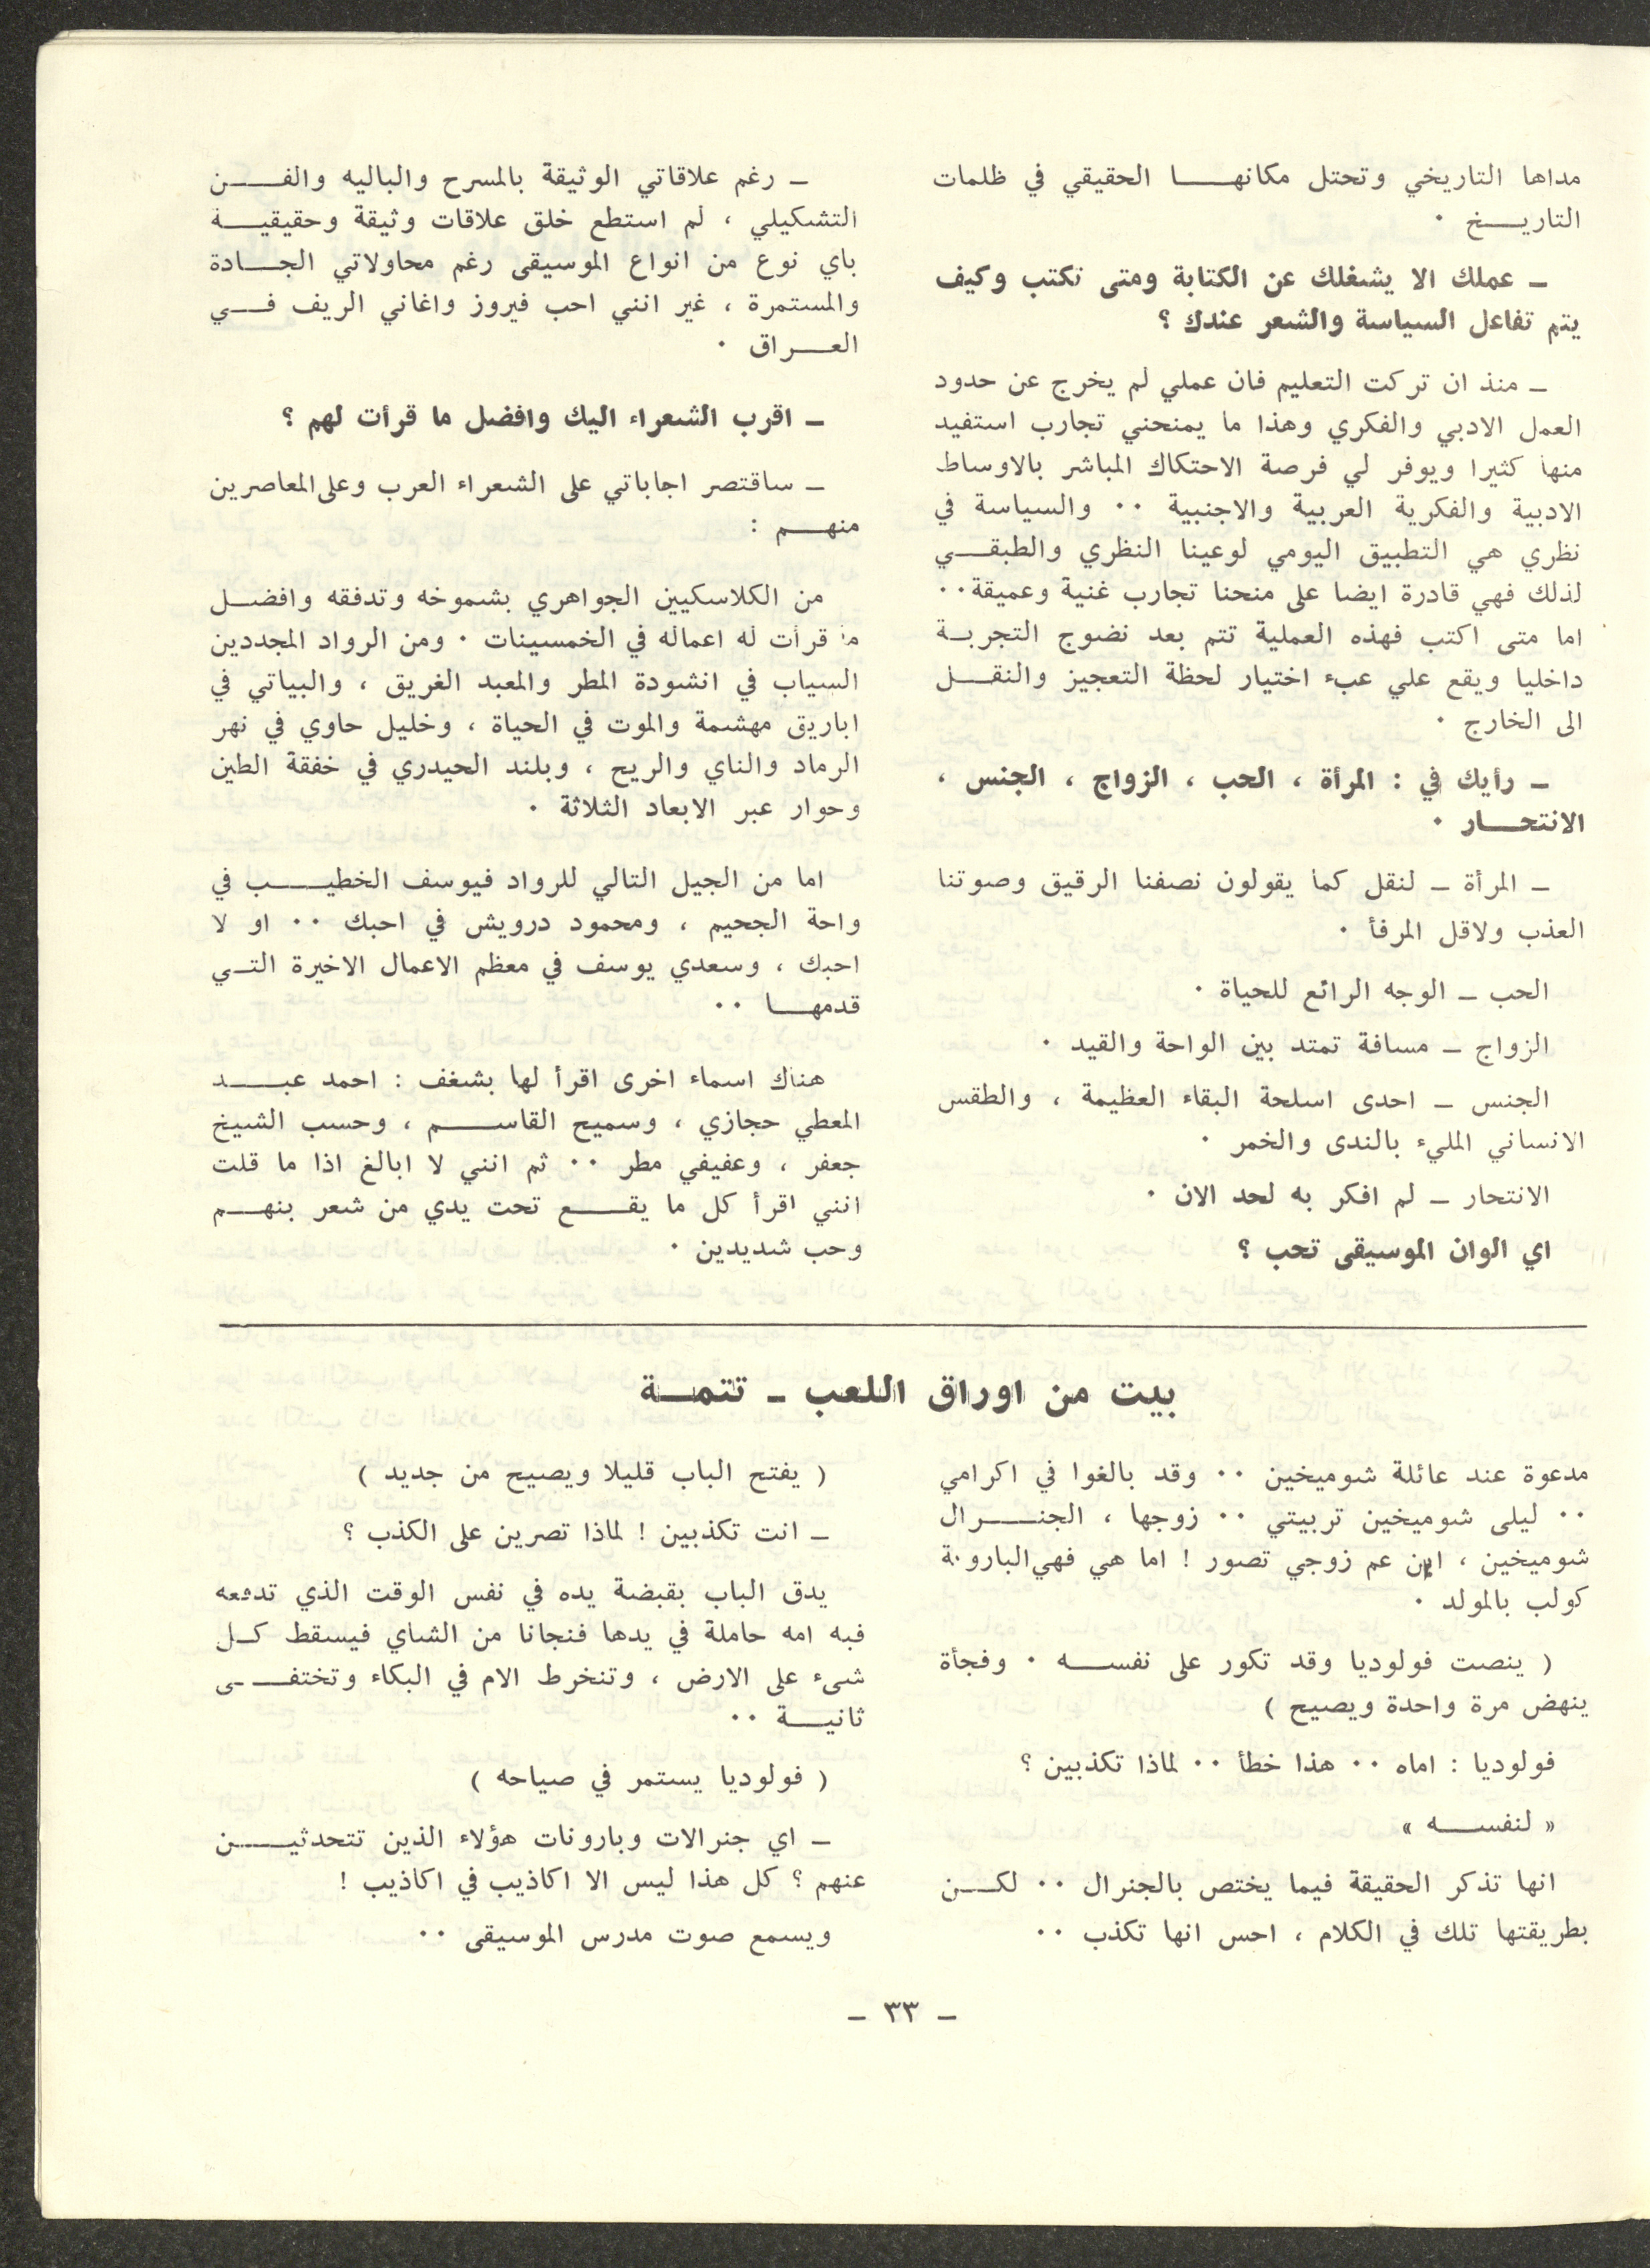 مداها التاريخي وتحتل مكانهـــا الحقيقي في ظلمات
التاريـــخ ٠
ـ عملك الا يشغلك عن الكتابة ومتى تكتب وكيف
يتم تفاعل السياسة والشعر عندك ؟
ـ منذ ان تركت التعليم فان عملي لم يخرج عن حدود
العمل الادبي والفكري وهذا ما يمنحني تجارب استفيد
منها كثيرا ويوفر لي فرصة الاحتكاك المباشر بالاوساط
الادبية والفكرية العربية والاجنبية ٠٠ والسياسة في
نظري هي التطبيق اليومي لوعينا النظري والطبقـــي
لذلك فهي قادرة ايضا على منحنا تجارب غنية وعميقة٠٠
اما متى اكتب فهذه العملية تتم بعد نضوج التجربـة
داخليا ويقع علي عبء اختيار لحظة التعجيز والنقـــل
الى الخارج ٠
ـ رأيك في : المرأة ، الحب ، الزواج ، الجنس ،
الانتحـــار ٠
ـ المرأة ـ لنقل كما يقولون نصفنا الرقيق وصوتنا
العذب ولاقل المرفأ ٠
الحب ـ الوجه الرائع للحياة ٠
الزواج ـ مسافة تمتد بين الواحة والقيد ٠
الجنس ـ احدى اسلحة البقاء العظيمة ، والطقس
الانساني المليء بالندى والخمر ٠
الانتحار ـ لم افكر به لحد الان ٠
اي الوان الموسيقى تحب ؟
ـ رغم علاقاتي الوثيقة بالمسرح والباليه والفـــن
التشكيلي ، لم استطع خلق علاقات وثيقة وحقيقيـــة
باي نوع من انواع الموسيقى رغم محاولاتي الجـــادة
والمستمرة ، غير انني احب فيروز واغاني الريف فـــي
العـــراق ٠
ـ اقرب الشعراء اليك وافضل ما قرأت لهم ؟
ـ ساقتصر اجاباتي على الشعراء العرب وعلى المعاصرين
منهـــم :
من الكلاسكيين الجواهري بشموخه وتدفقه وافضـــل
ما قرأت له اعماله في الخمسينات ٠ ومن الرواد المجددين
السياب في انشودة المطر والمعبد الغريق ، والبياتي في
اباريق مهشمة والموت في الحياة ، وخليل حاوي في نهر
الرماد والناي والريح ، وبلند الحيدري في خفقة الطين
وحوار عبر الابعاد الثلاثة ٠
اما من الجيل التالي للرواد فيوسف الخطيـــب في
واحة الجحيم ، ومحمود درويش في احبك ٠٠ او لا
احبك ، وسعدي يوسف في معظم الاعمال الاخيرة التـي
قدمهـــا ٠٠
هناك اسماء اخرى اقرأ لها بشغف : احمد عبـــد
المعطي حجازي ، وسميح القاســـم ، وحسب الشيخ
جعفر ، وعفيفي مطر ٠٠ ثم انني لا ابالغ اذا ما قلت
انني اقرأ كل ما يقـــع تحت يدي من شعر بنهـــم
وحب شديدين ٠
بيت من اوراق اللعب ـ تتمـــة
مدعوة عند عائلة شوميخين ٠٠ وقد بالغوا في اكرامي
٠٠ ليلى شوميخين تربيتي ٠٠ زوجها ، الجنـــرال
شوميخين ، ابن عم زوجي تصور ! اما هي فهي البارونة
كولب بالمولد ٠
( ينصت فولوديا وقد تكور على نفســـه ٠ وفجأة
ينهض مرة واحدة ويصيح )
فولوديا : اماه ٠٠ هذا خطأ ٠٠ لماذا تكذبين ؟
« لنفســـه »
انها تذكر الحقيقة فيما يختص بالجنرال ٠٠ لكـــن
بطريقتها تلك في الكلام ، احس انها تكذب ٠٠
( يفتح الباب قليلا ويصيح من جديد )
ـ انت تكذبين ! لماذا تصرين على الكذب ؟
يدق الباب بقبضة يده في نفس الوقت الذي تدفعه
فيه امه حاملة في يدها فنجانا من الشاي فيسقط كـل
شىء على الارض ، وتنخرط الام في البكاء وتختفـــى
ثانيـــة ٠٠
( فولوديا يستمر في صياحه )
ـ اي جنرالات وبارونات هؤلاء الذين تتحدثيـــن
عنهم ؟ كل هذا ليس الا اكاذيب في اكاذيب !
ويسمع صوت مدرس الموسيقى ٠٠
ـ ٣٣ ـ